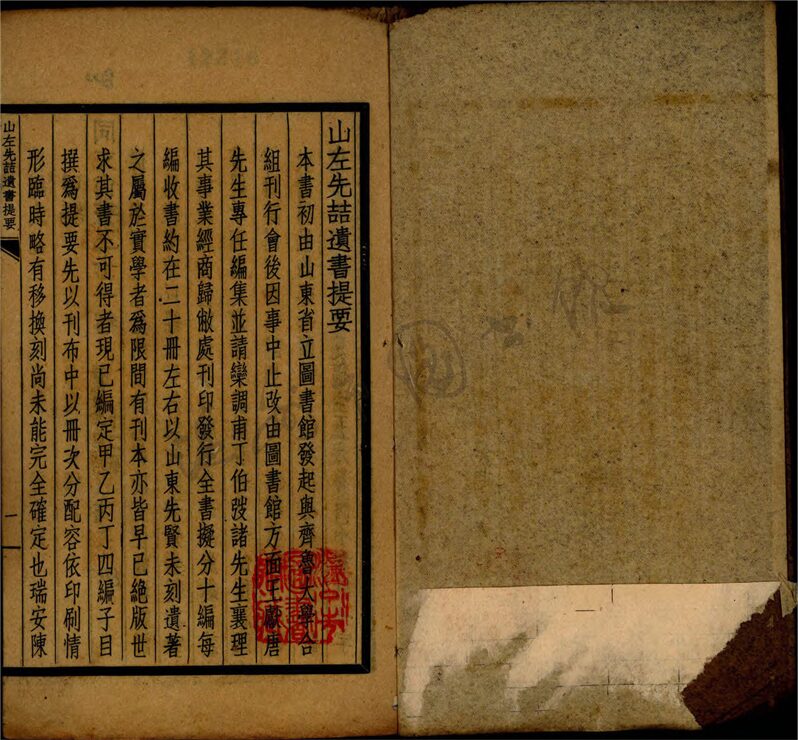 山左先喆遺書提要
本書初由山東省立圖書館發起與齊魯大學合
組刊行會後因事中止改由圖書館方面王獻唐
先生專任編集並請欒調甫丁伯弢諸先生襄理
其事業經商歸敝處刊印發行全書擬分十編每
編收書約在二十冊左右以山東先賢未刻遺著
之屬於實學者爲限間有刊本亦皆早已絕版世
求其書不可得者現已編定甲乙丙丁四編子目
撰爲提要先以刊布中以冊次分配容依印刷情
形臨時略有移換刻尚未能完全確定也瑞安陳
山左先喆遺書提要
一